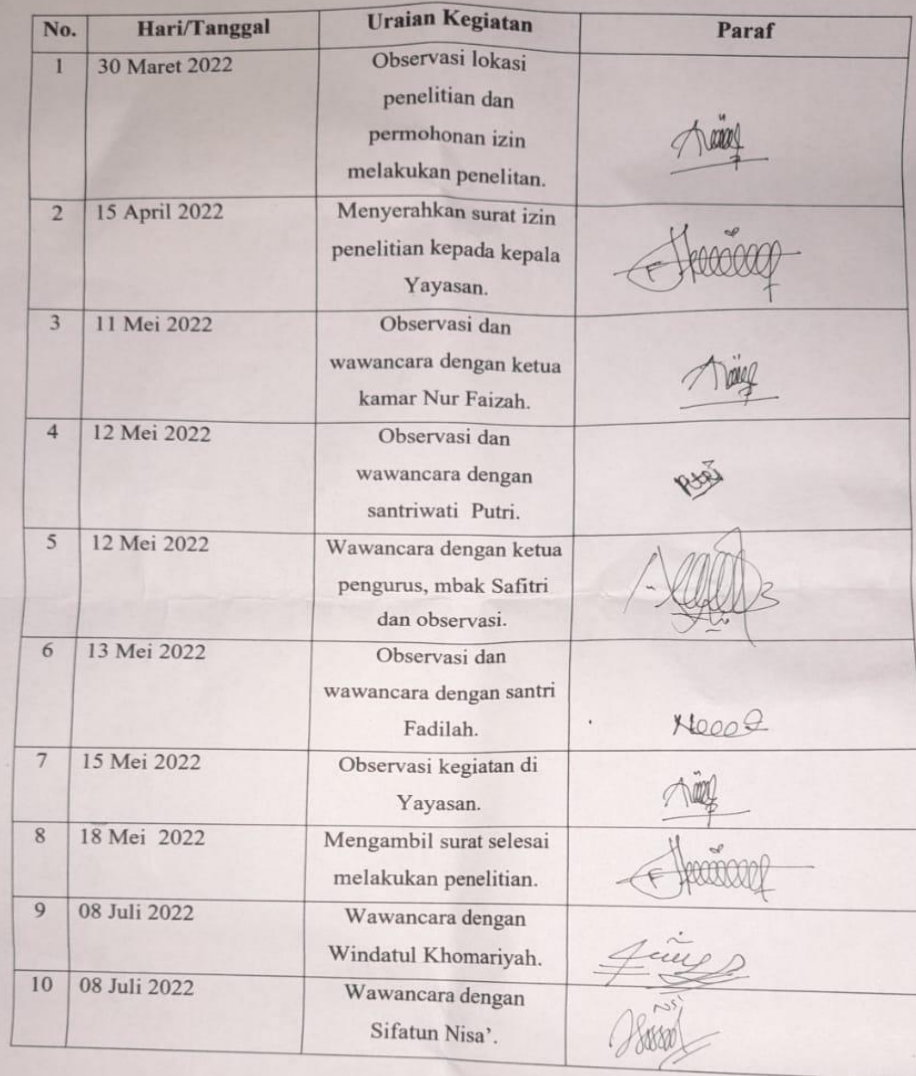 No. Hari/Tanggal Uraian Kegiatan Paraf
1 30 Maret 2022 Observasi lokasi
penelitian dan
permohonan izin
melakukan penelitan.
2 15 April 2022 Menyerahkan surat izin
penelitian kepada kepala
Yayasan.
3 11 Mei 2022 Observasi dan
wawancara dengan ketua
kamar Nur Faizah.
4 12 Mei 2022 Observasi dan
wawancara dengan
santriwati Putri.
Putri
5 12 Mei 2022 Wawancara dengan ketua
pengurus, mbak Safitri
dan observasi.
6 13 Mei 2022 Observasi dan
wawancara dengan santri
Fadilah.
7 15 Mei 2022 Observasi kegiatan di
Yayasan.
8 18 Mei 2022 Mengambil surat selesai
melakukan penelitian.
9 08 Juli 2022 Wawancara dengan
Windatul Khomariyah.
10 08 Juli 2022 Wawancara dengan
Sifatun Nisa’.